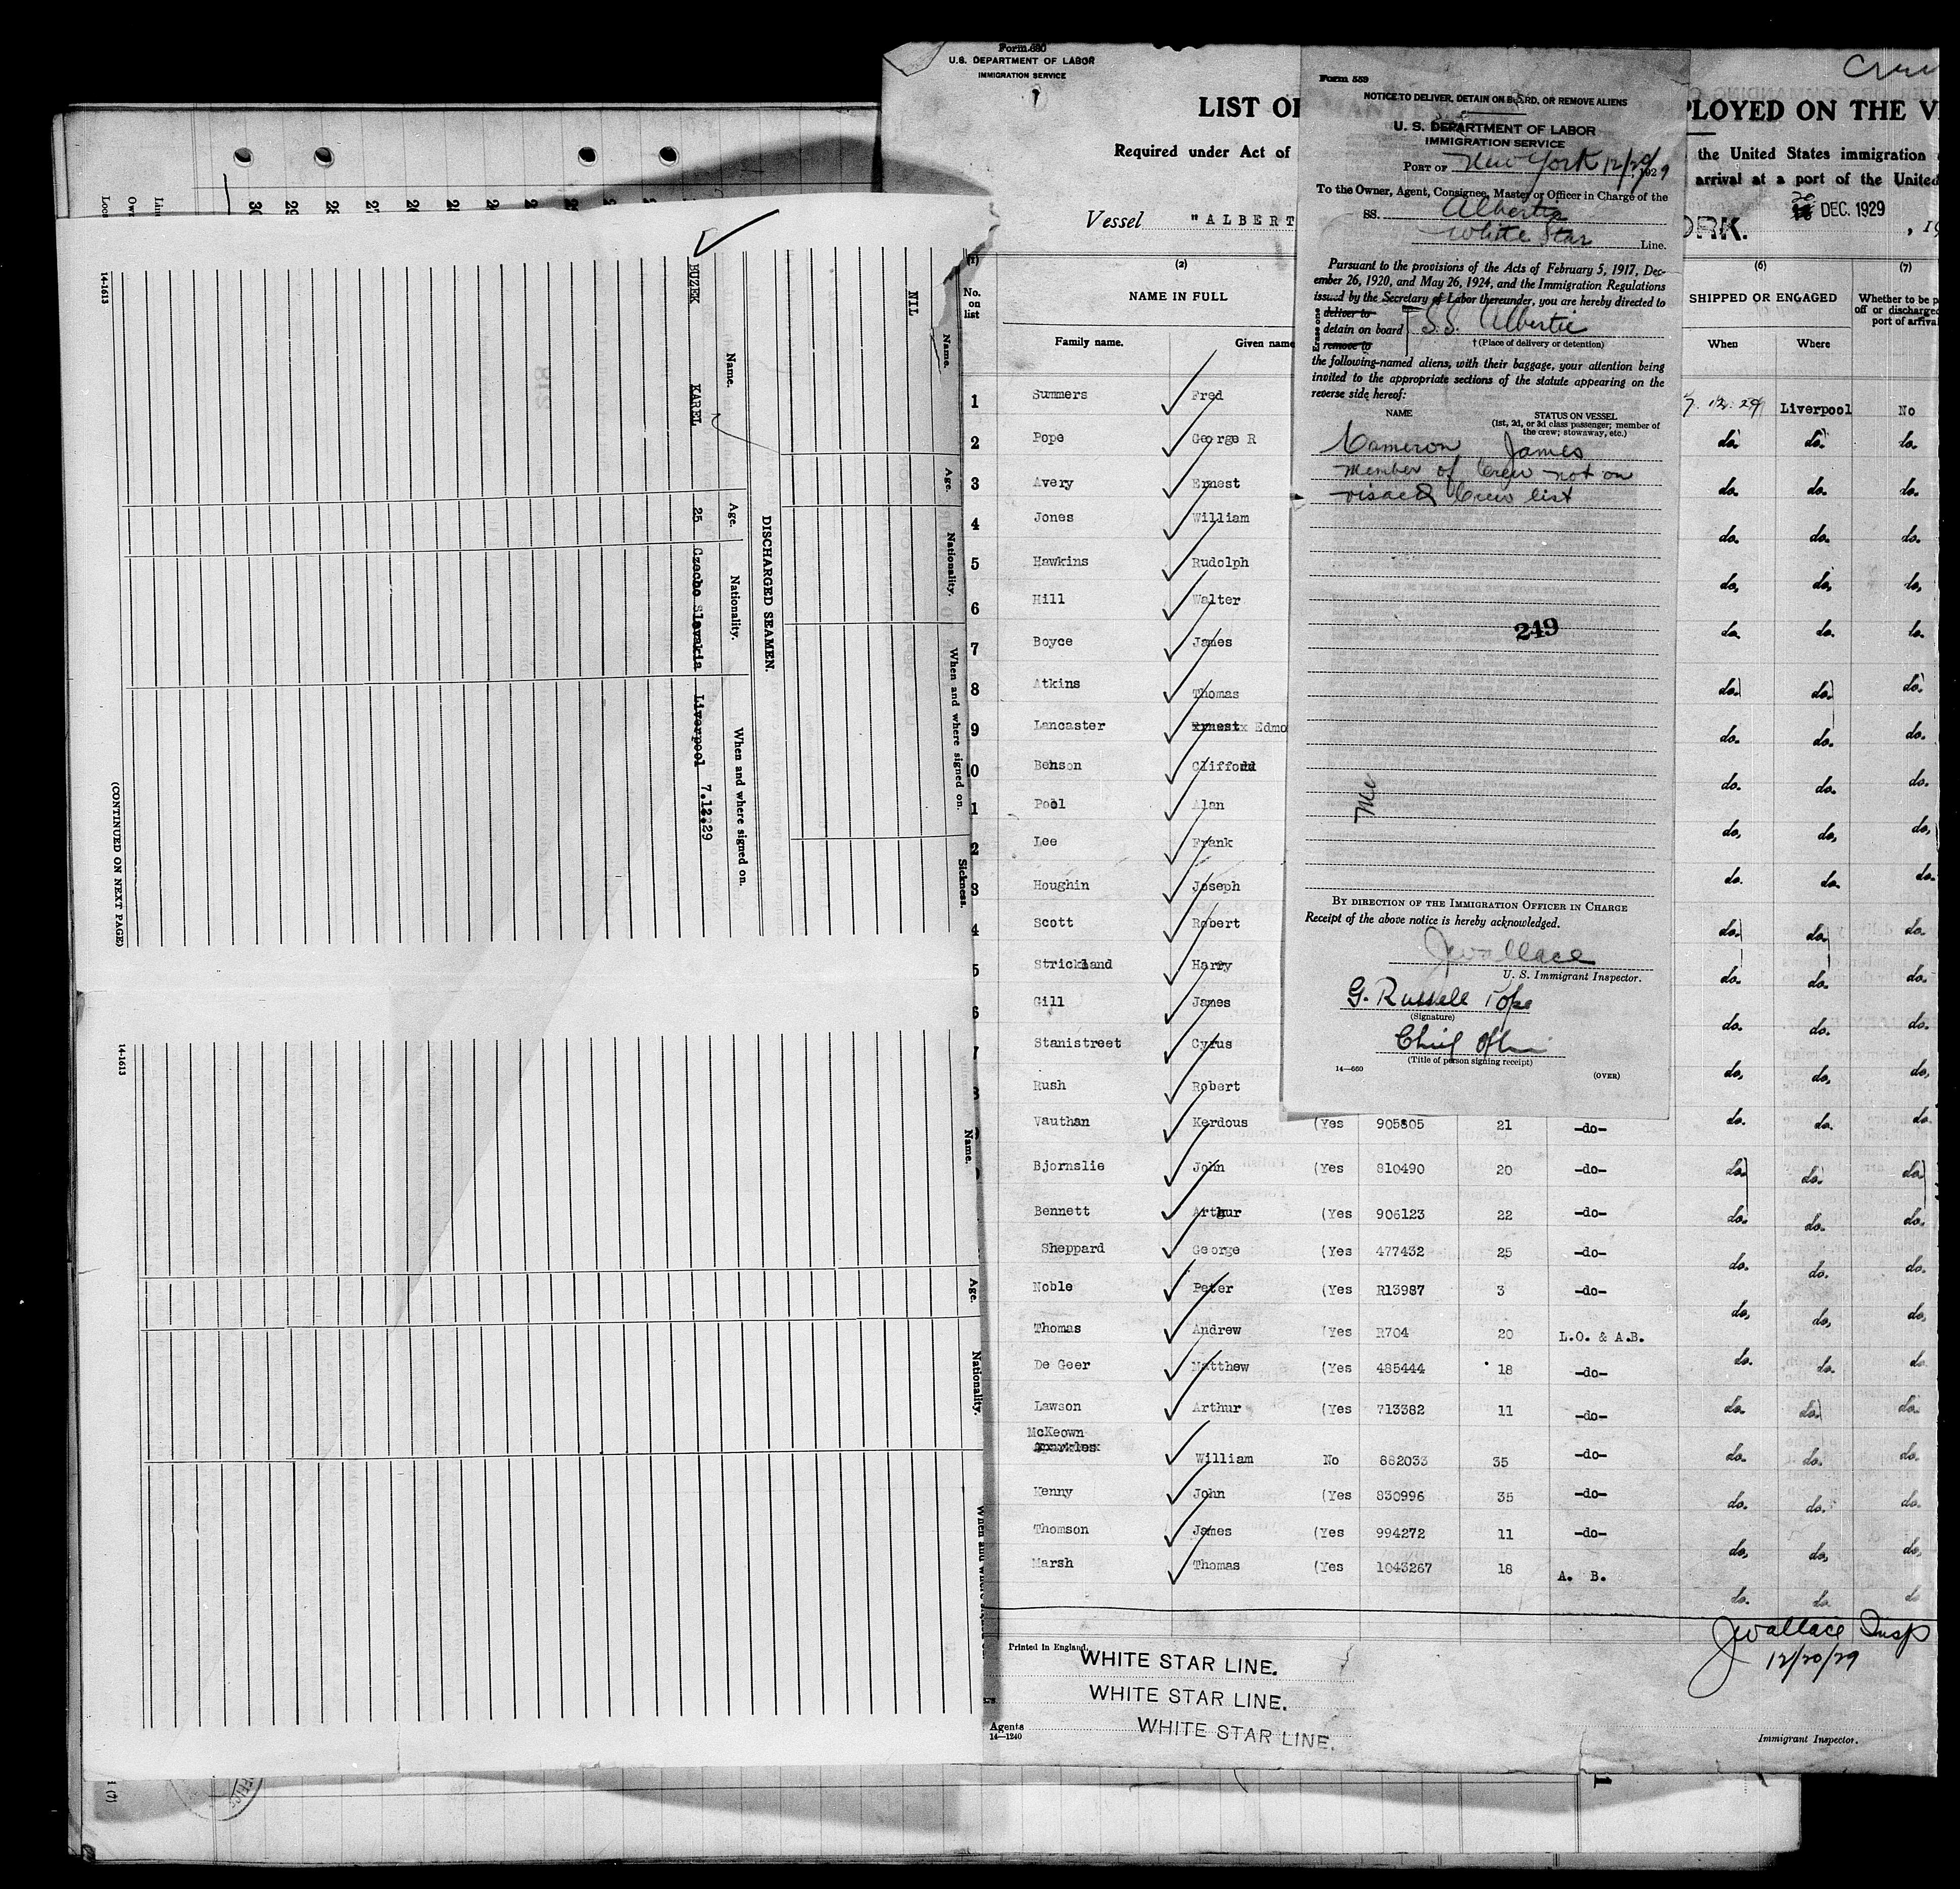 Form 680
U.S. DEPARTMENT OF LABOR
IMMIGRATION SERVICE
LIST OF
PLOYED ON THE V
Required under Act of
the United States immigration
arrival at a port of the United
Vessel "ALBERT
ORK.
20 DEC. 1929
, 19
(1) (2) (6) (7)
No. on list
NAME IN FULL
SHIPPED OR ENGAGED
Whether to be p
off or discharged
port of arrival
Family name. Given name
When Where
1 Summers Fred 7.12.29 Liverpool No
2 Pope George R do. do. do.
3 Avery Ernest do. do. do.
4 Jones William do. do. do.
5 Hawkins Rudolph do. do. do.
6 Hill Walter do. do. do.
7 Boyce James do. do. do.
8 Atkins Thomas do. do. do.
9 Lancaster Ernest Edmo do. do. do.
10 Benson Clifford do. do. do.
1 Pool Alan do. do. do.
2 Lee Frank do. do. do.
3 Houghin Joseph do. do. do.
4 Scott Robert do. do. do.
5 Strickland Harry do. do. do.
6 Gill James do. do. do.
7 Stanistreet Cyrus do. do. do.
8 Rush Robert do. do. do.
Vauthan Kerdous (Yes 905805 21 -do- do. do. do.
Bjornslie John (Yes 810490 20 -do- do. do. do.
Bennett Arthur (Yes 906123 22 -do- do. do. do.
Sheppard George (Yes 477432 25 -do- do. do. do.
Noble Peter (Yes R13987 3 -do- do. do. do.
Thomas Andrew (Yes R704 20 L.O. & A.B. do. do. do.
De Geer Matthew (Yes 485444 18 -do- do. do. do.
Lawson Arthur (Yes 713382 11 -do- do. do. do.
McKeown
William No 882033 35 -do- do. do. do.
Kenny John (Yes 830996 35 -do- do. do. do.
Thomson James (Yes 994272 11 -do- do. do. do.
Marsh Thomas (Yes 1043267 18 A. B. do. do. do.
Printed in England.
WHITE STAR LINE.
WHITE STAR LINE.
Agents WHITE STAR LINE.
14—1240
JWallace Insp
12/20/29
Immigrant Inspector.
Form 559
NOTICE TO DELIVER, DETAIN ON BOARD, OR REMOVE ALIENS
U. S. DEPARTMENT OF LABOR
IMMIGRATION SERVICE
PORT OF New York 12/20/1929
To the Owner, Agent, Consignee, Master or Officer in Charge of the
SS. Albertic
White Star Line.
Pursuant to the provisions of the Acts of February 5, 1917, Dec-
ember 26, 1920, and May 26, 1924, and the Immigration Regulations
issued by the Secretary of Labor thereunder, you are hereby directed to
Erase one
deliver to
detain on board S.S. Albertic
remove to †(Place of delivery or detention)
the following-named aliens, with their baggage, your attention being
invited to the appropriate sections of the statute appearing on the
reverse side hereof:
NAME STATUS ON VESSEL
(1st, 2d, or 3d class passenger; member of
the crew; stowaway, etc.)
Cameron James
Member of Crew not on
visaed Crew list
249
BY DIRECTION OF THE IMMIGRATION OFFICER IN CHARGE
Receipt of the above notice is hereby acknowledged.
JWallace
U. S. Immigrant Inspector.
G. Russell Pope
(Signature)
Chief Offr
(Title of person signing receipt)
14—660
(OVER)
NIL
Name. Age. Nationality. When and where signed on. Sickness.
DISCHARGED SEAMEN.
Name. Age. Nationality. When and where signed on.
BUZEK KAREL 25 Czecho Slavakia Liverpool 7.12.29
14-1613
(CONTINUED ON NEXT PAGE)
Name. Age. Nationality.
14-1613
30 29 28 27 26